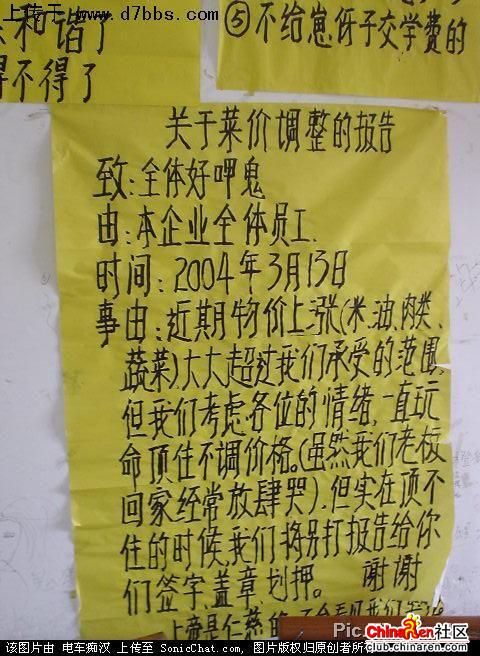 上传于 www.d7bbs.com
和谐了
得不得了
⑤不给崽伢子交学费的
关于菜价调整的报告
致:全体好呷鬼
由:本企业全体员工.
时间:2004年3月13日
事由:近期物价上涨(米、油、肉类、
蔬菜)大大超过我们承受的范围,
但我们考虑各位的情绪,一直玩
命顶住不调价格。(虽然我们老板
回家经常放肆哭).但实在顶不
住的时候,我们将另打报告给你
们签字、盖章、划押。 谢谢
上帝是仁慈的
Pic.
ChinaRen社区
club.chinaren.com
该图片由 电车痴汉 上传至 SonicChat.com, 图片版权归原创者所